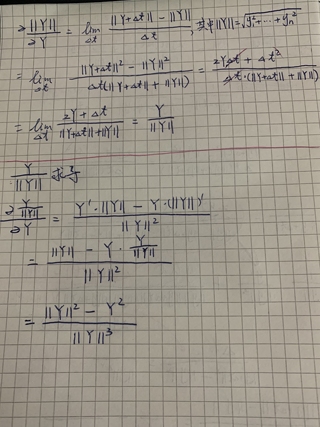 ∂||Y|| / ∂Y = lim Δt (||Y+Δt|| - ||Y||) / Δt, 其中||Y||=√(y₁²+…+yₙ²)
= lim Δt (||Y+Δt||² - ||Y||²) / (Δt(||Y+Δt|| + ||Y||)) = (2YΔt + Δt²) / (Δt·(||Y+Δt|| + ||Y||))
= lim Δt (2Y + Δt) / (||Y+Δt||+||Y||) = Y / ||Y||
Y / ||Y|| 求导
∂(Y/||Y||) / ∂Y = (Y'·||Y|| - Y·(||Y||)') / ||Y||²
= (||Y|| - Y·Y/||Y||) / ||Y||²
= (||Y||² - Y²) / ||Y||³